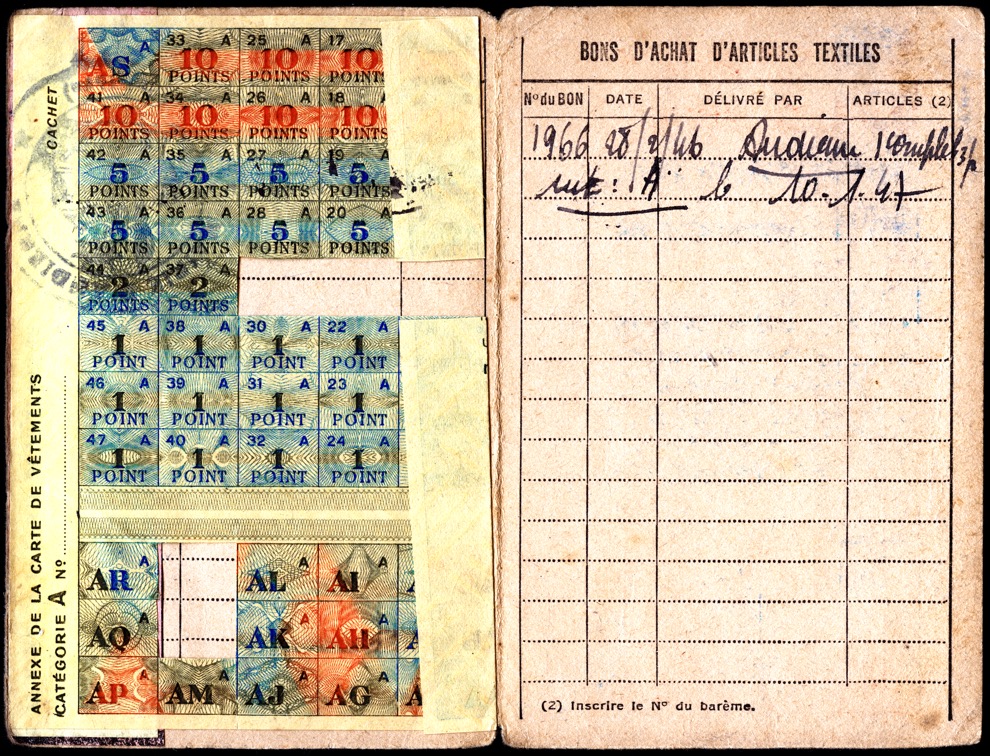 CACHET
ANNEXE DE LA CARTE DE VÊTEMENTS
CATÉGORIE A Nº
AS A 33 A 25 A 17
10 10 10
POINTS POINTS POINTS
41 A 34 A 26 A 18
10 10 10 10
POINTS POINTS POINTS POINTS
42 A 35 A 27 A 19
5 5 5 5
POINTS POINTS POINTS POINTS
43 A 36 A 28 A 20
5 5 5 5
POINTS POINTS POINTS POINTS
44 A 37 A
2 2
POINTS POINTS
45 A 38 A 30 A 22 A
1 1 1 1
POINT POINT POINT POINT
46 A 39 A 31 A 23 A
1 1 1 1
POINT POINT POINT POINT
47 A 40 A 32 A 24 A
1 1 1 1
POINT POINT POINT POINT
AR A AL A AI A
AQ A AK A AH A
AP A AM A AJ A AG A
BONS D'ACHAT D'ARTICLES TEXTILES
Nº du BON DATE DÉLIVRÉ PAR ARTICLES (2)
1966 28/2/46
A 10.1.47
(2) Inscrire le Nº du barème.